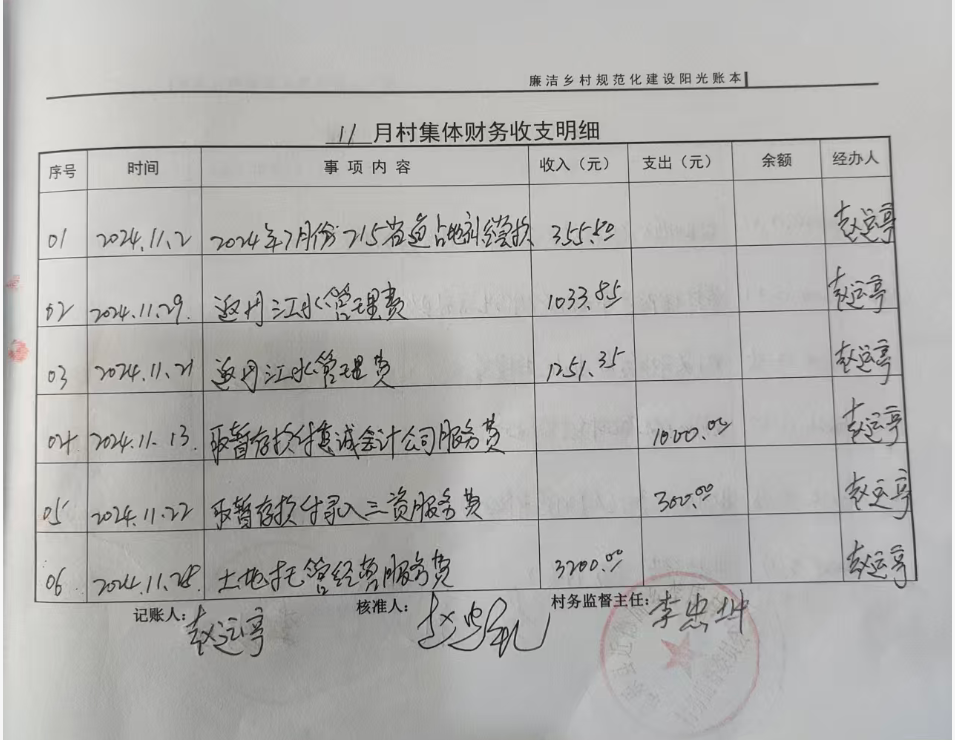 廉洁乡村规范化建设阳光账本
11 月村集体财务收支明细
序号 时间 事项内容 收入（元） 支出（元） 余额 经办人
01 2024.11.2 2024年7月份215省道占地补偿款 355.80 赵运亭
02 2024.11.29. 返丹江水管理费 1033.85 赵运亭
03 2024.11.21 返丹江水管理费 1251.35 赵运亭
04 2024.11.13. 取暂存款付真诚会计公司服务费 1000.00 赵运亭
05 2024.11.22 取暂存款付录入三资服务费 300.00 赵运亭
06 2024.11.28. 土地托管经营服务费 3200.00 赵运亭
记账人： 赵运亭 核准人： 村务监督主任： 李忠坤